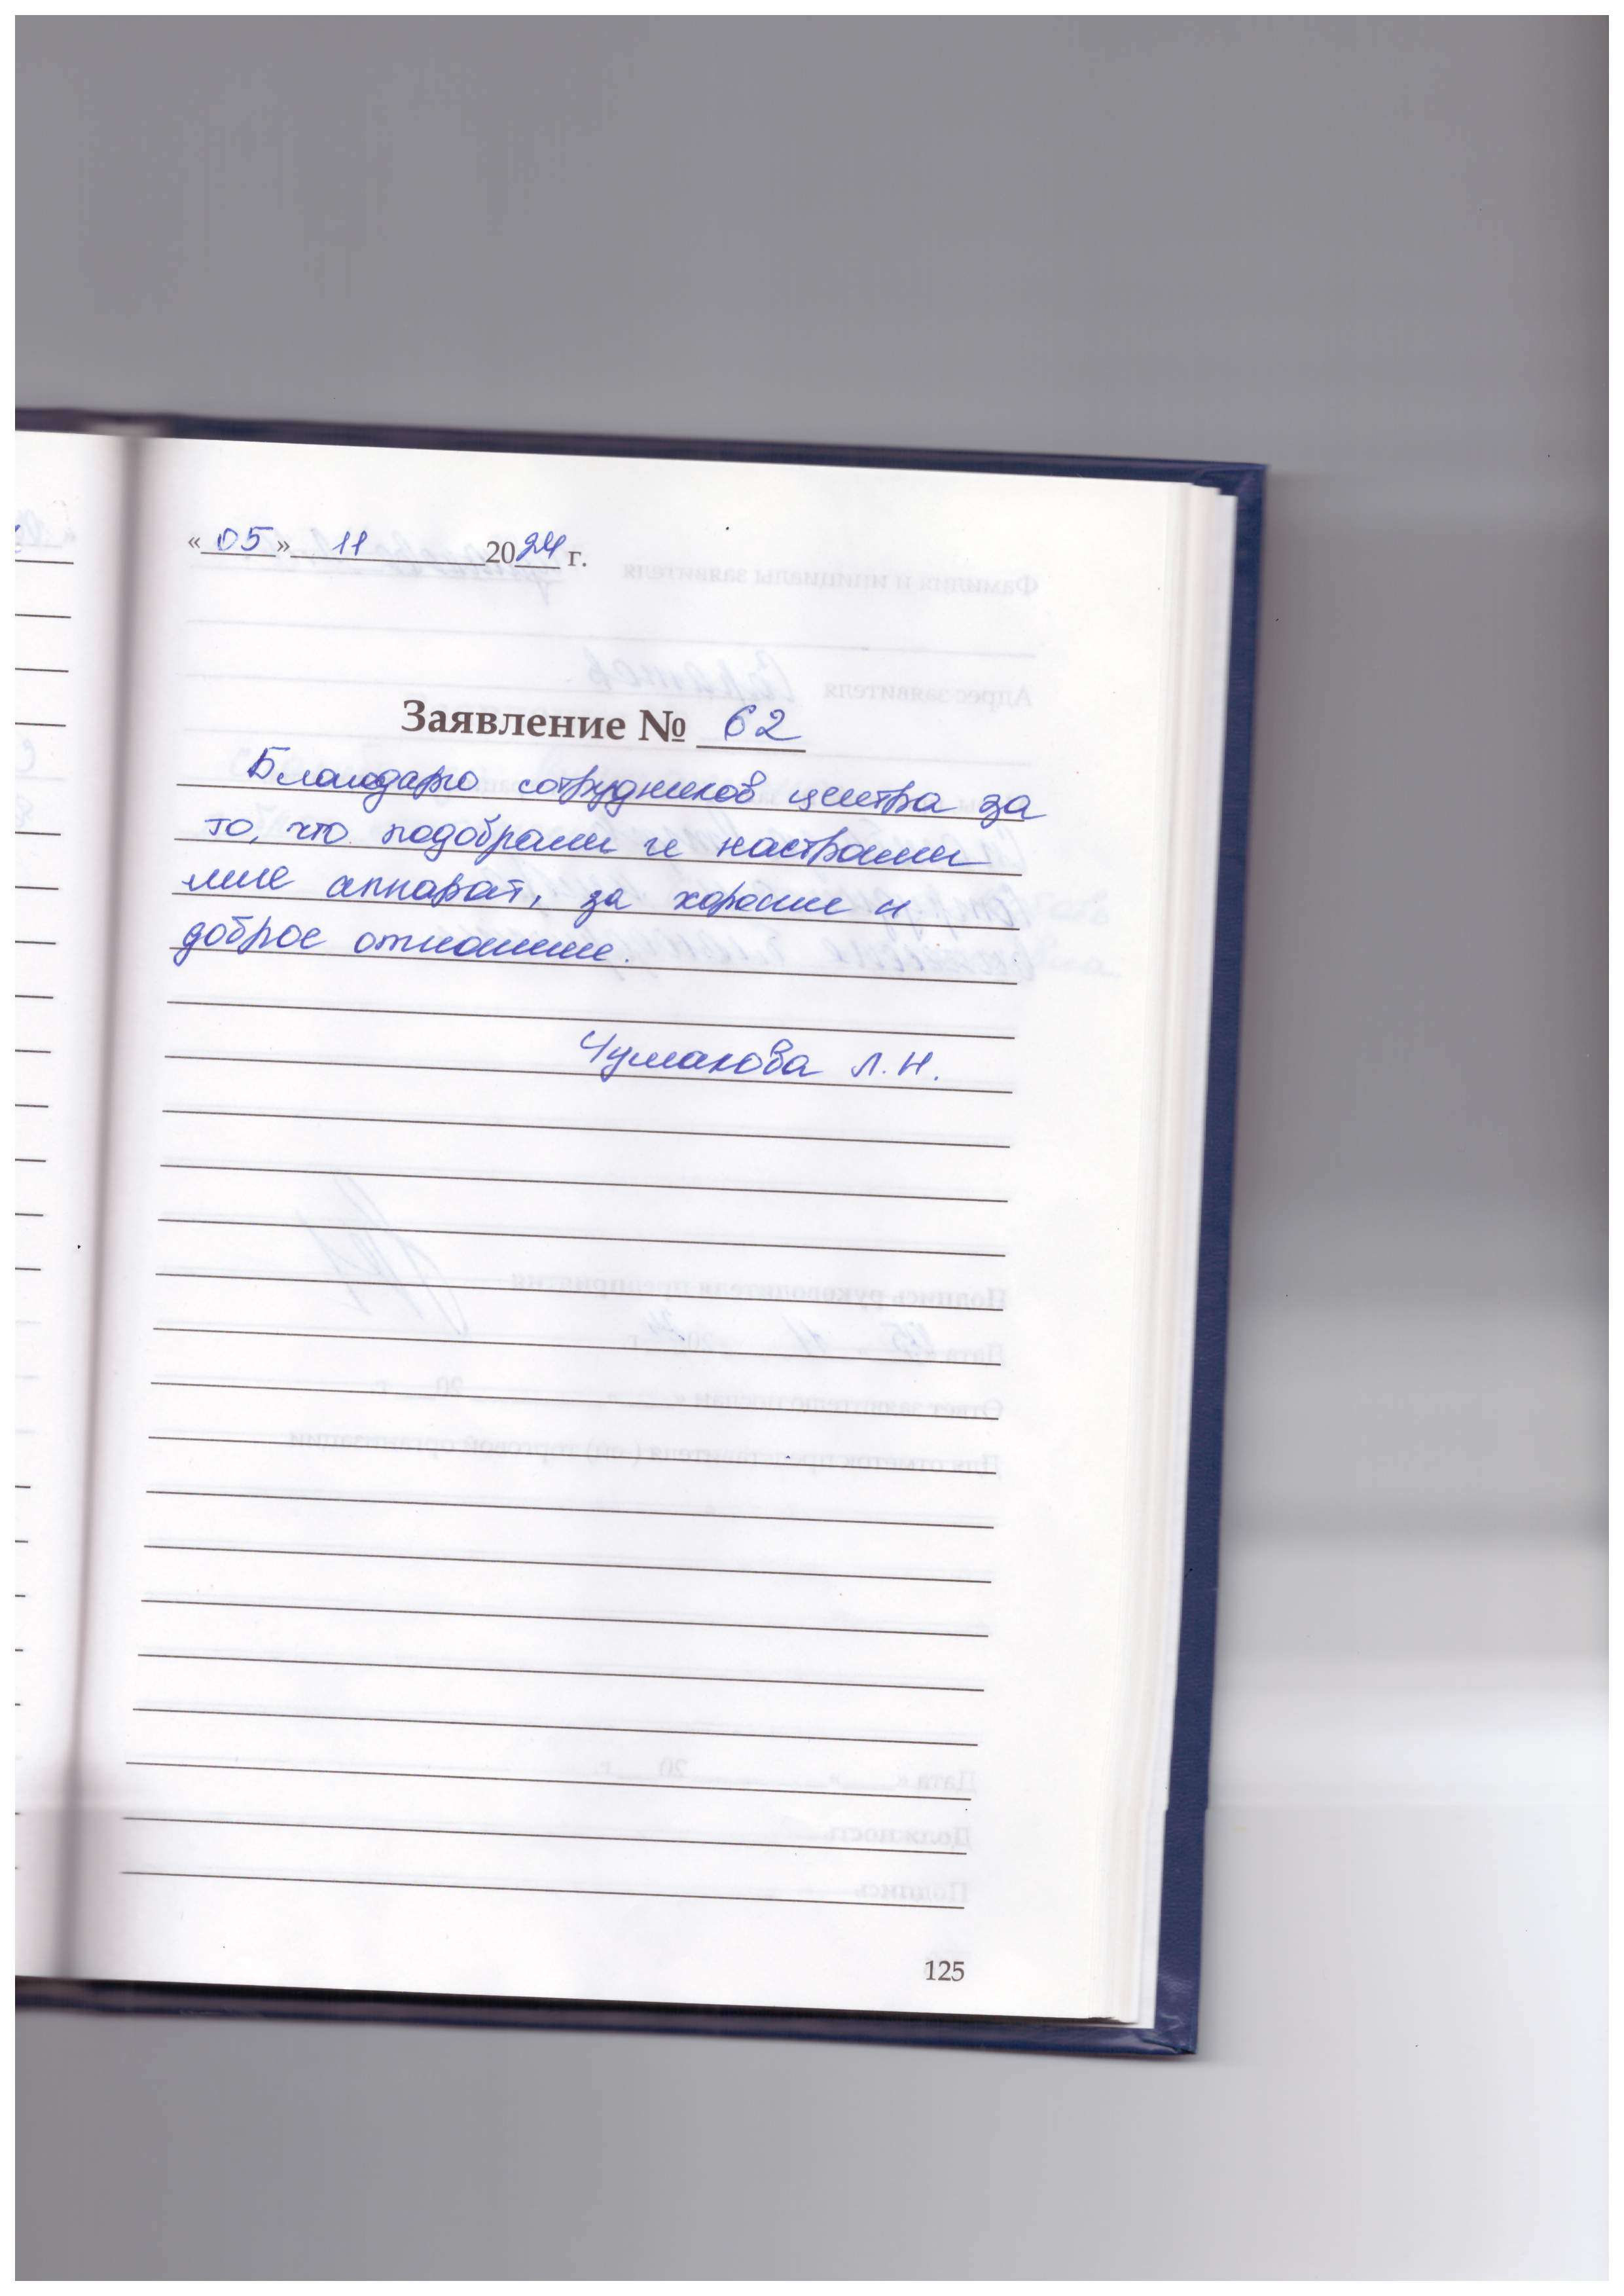 «05» 11 2024 г.
Заявление № 62
Благодарю сотрудников центра за
то, что подобрали и настроили
мне аппарат, за хорошее и
доброе отношение.
Чумакова Л.Н.
125